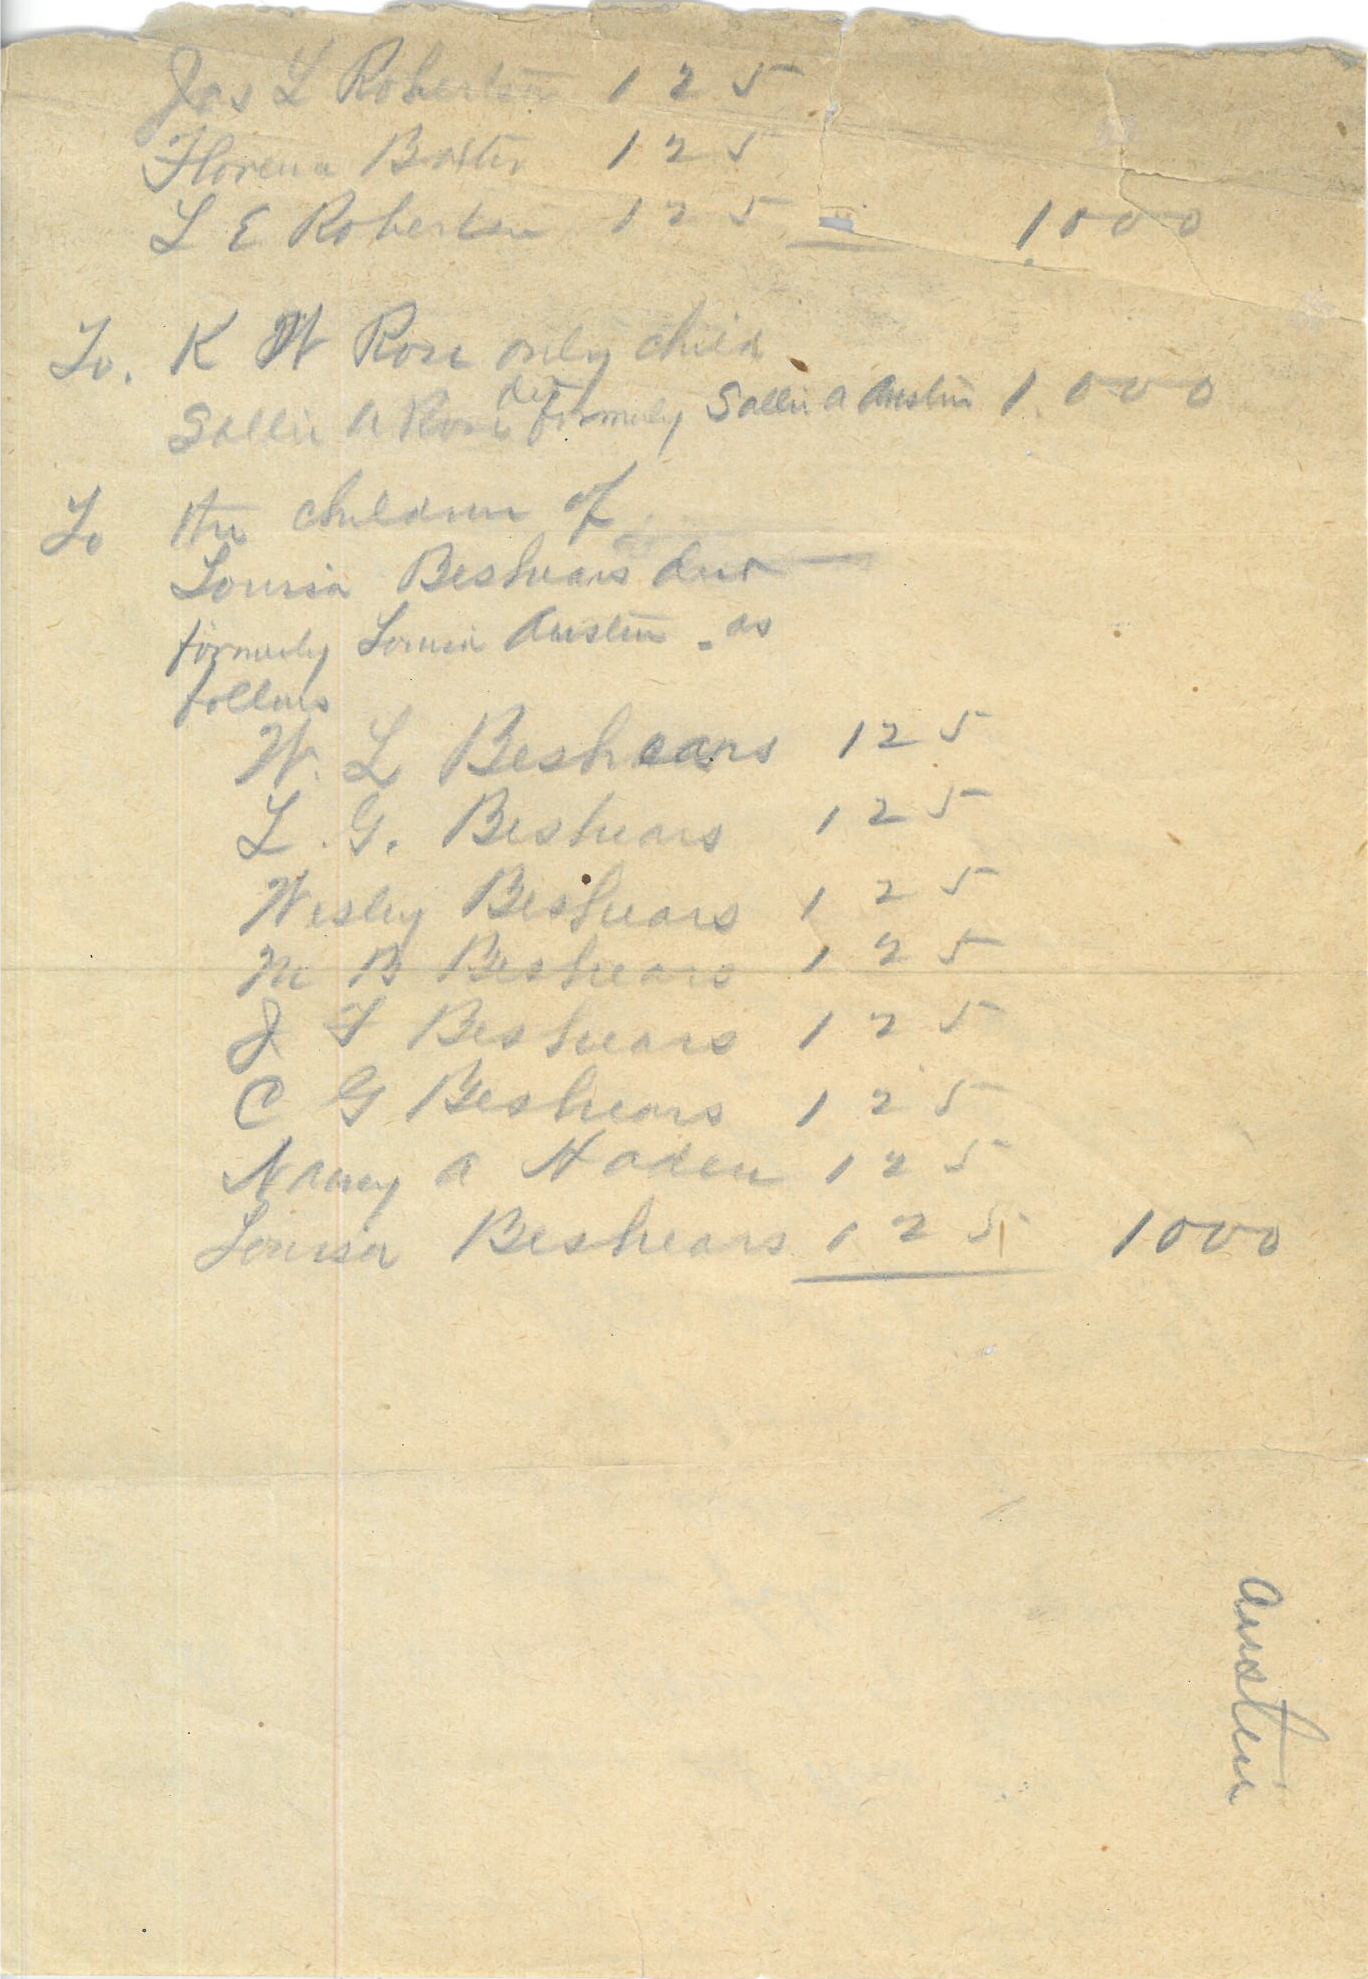 Jas L Robertson 125
Florena Baxter 125
L E Robertson 125 1,000
To. K W Rose only child
Sallie A Rose dec formerly Sallie A Austin 1,000
To the children of
Louisa Beshears decd
formerly Louisa Austin - as
follows
W. L Beshears 125
L. G. Beshears 125
Wesley Beshears 125
M B Beshears 125
J F Beshears 125
C G Beshears 125
Nancy A Haden 125
Louisa Beshears 125 1000
Austin